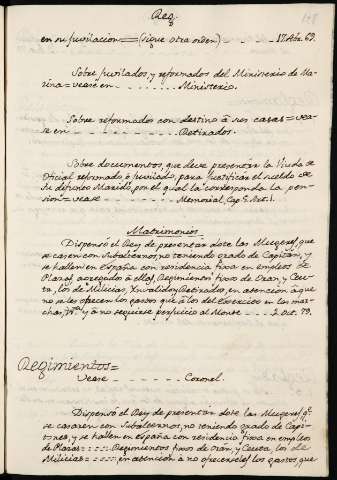 Reg.
en su jubilacion = (sigue otra orden) - - - - 17. Abr. 63.
Sobre jubilados y reformados del Ministerio de Ma-
rina = vease en - - - - - - - Ministerio.
Sobre reformados con destino à sus casas = vea-
se en - - - - - - - - Retirados.
Sobre documentos, que debe presentar la Viuda de
Oficial reformado, ò jubilado, para justificar el sueldo de
su difunto Marido, por el qual la corresponda la pen-
sion = vease - - - - - Memorial, Cap. 5. Art. 1.
Matrimonios
Dispensó el Rey de presentar dote las Mugeres, que
se casen con Subalternos, no teniendo grado de Capitan, y
se hallen en España con residencia fixa en empleos de
Plazas, agregado à ellas, Regimientos fixos de Oran, y Ceu-
ta, los de Milicias, Xnvalidos y Retirados, en atencion à que
no se les ofrecen los gastos que à los del Exercito en las mar-
chas, y à no seguirse perjuicio al Monte - - - - 2. Oct. 79.
Regimientos =
Vease - - - - - - - - Coronel.
Dispensó el Rey de presentar dote las Mugeres q.e
se casaren con Subalternos, no teniendo grado de Capi-
tanes, y se hallen en España con residencia fixa en empleos
de Plazas = = = = = Regimientos fixos de Oran y Ceuta, los de
Milicias = = = = = en atencion à no ofrecerseles los gastos que